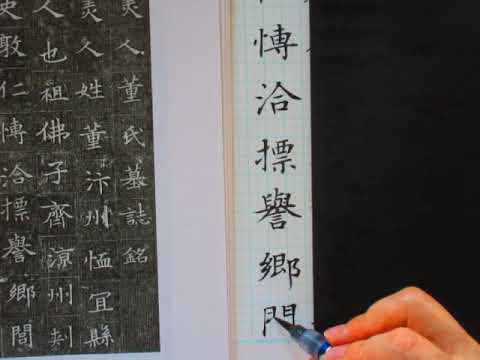 愽洽摽譽鄉門
美人董氏墓誌銘
美人姓董汴州恤宜縣
人也祖佛子齊涼州刾
史敦仁愽洽摽譽鄉閭